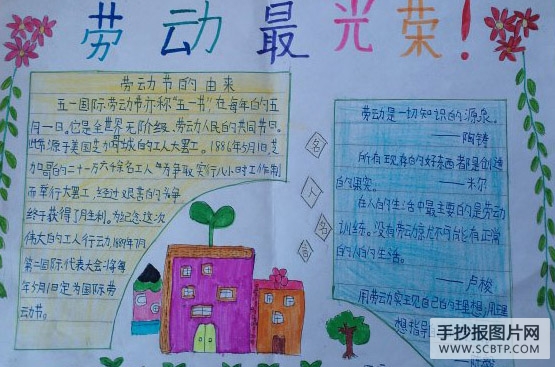 劳动最光荣！
劳动节的由来
五一国际劳动节亦称“五一节”在每年的五
月一日。它是全世界无阶级、劳动人民的共同节日。
此源于美国芝加哥城的工人大罢工。1886年5月1日芝
加哥的二十一万六千余名工人为争取实行八小时工作制
而举行大罢工，经过艰苦的
终于获得了胜利。为纪念这次
伟大的工人行动1889年7月
第二国际代表大会
年5月1日定为国际劳
动节。
名人名言
劳动是一切知识的源泉。
——陶铸
所有现存的好东西都是创造
的果实。
——米尔
在人的生活中最主要的是劳动
训练。没有劳动就不可能有正常
的人的生活。
——卢梭
用劳动实现自己的理想，用理
想指导
手抄报图片网
WWW.SCBTP.COM